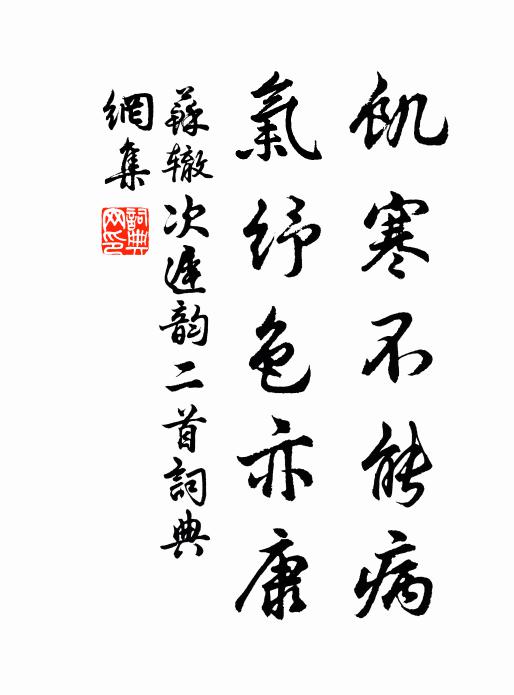 飢寒不能病
氣紓色亦康
蘇辙次遲韵二首詞典
網集
詞典网印